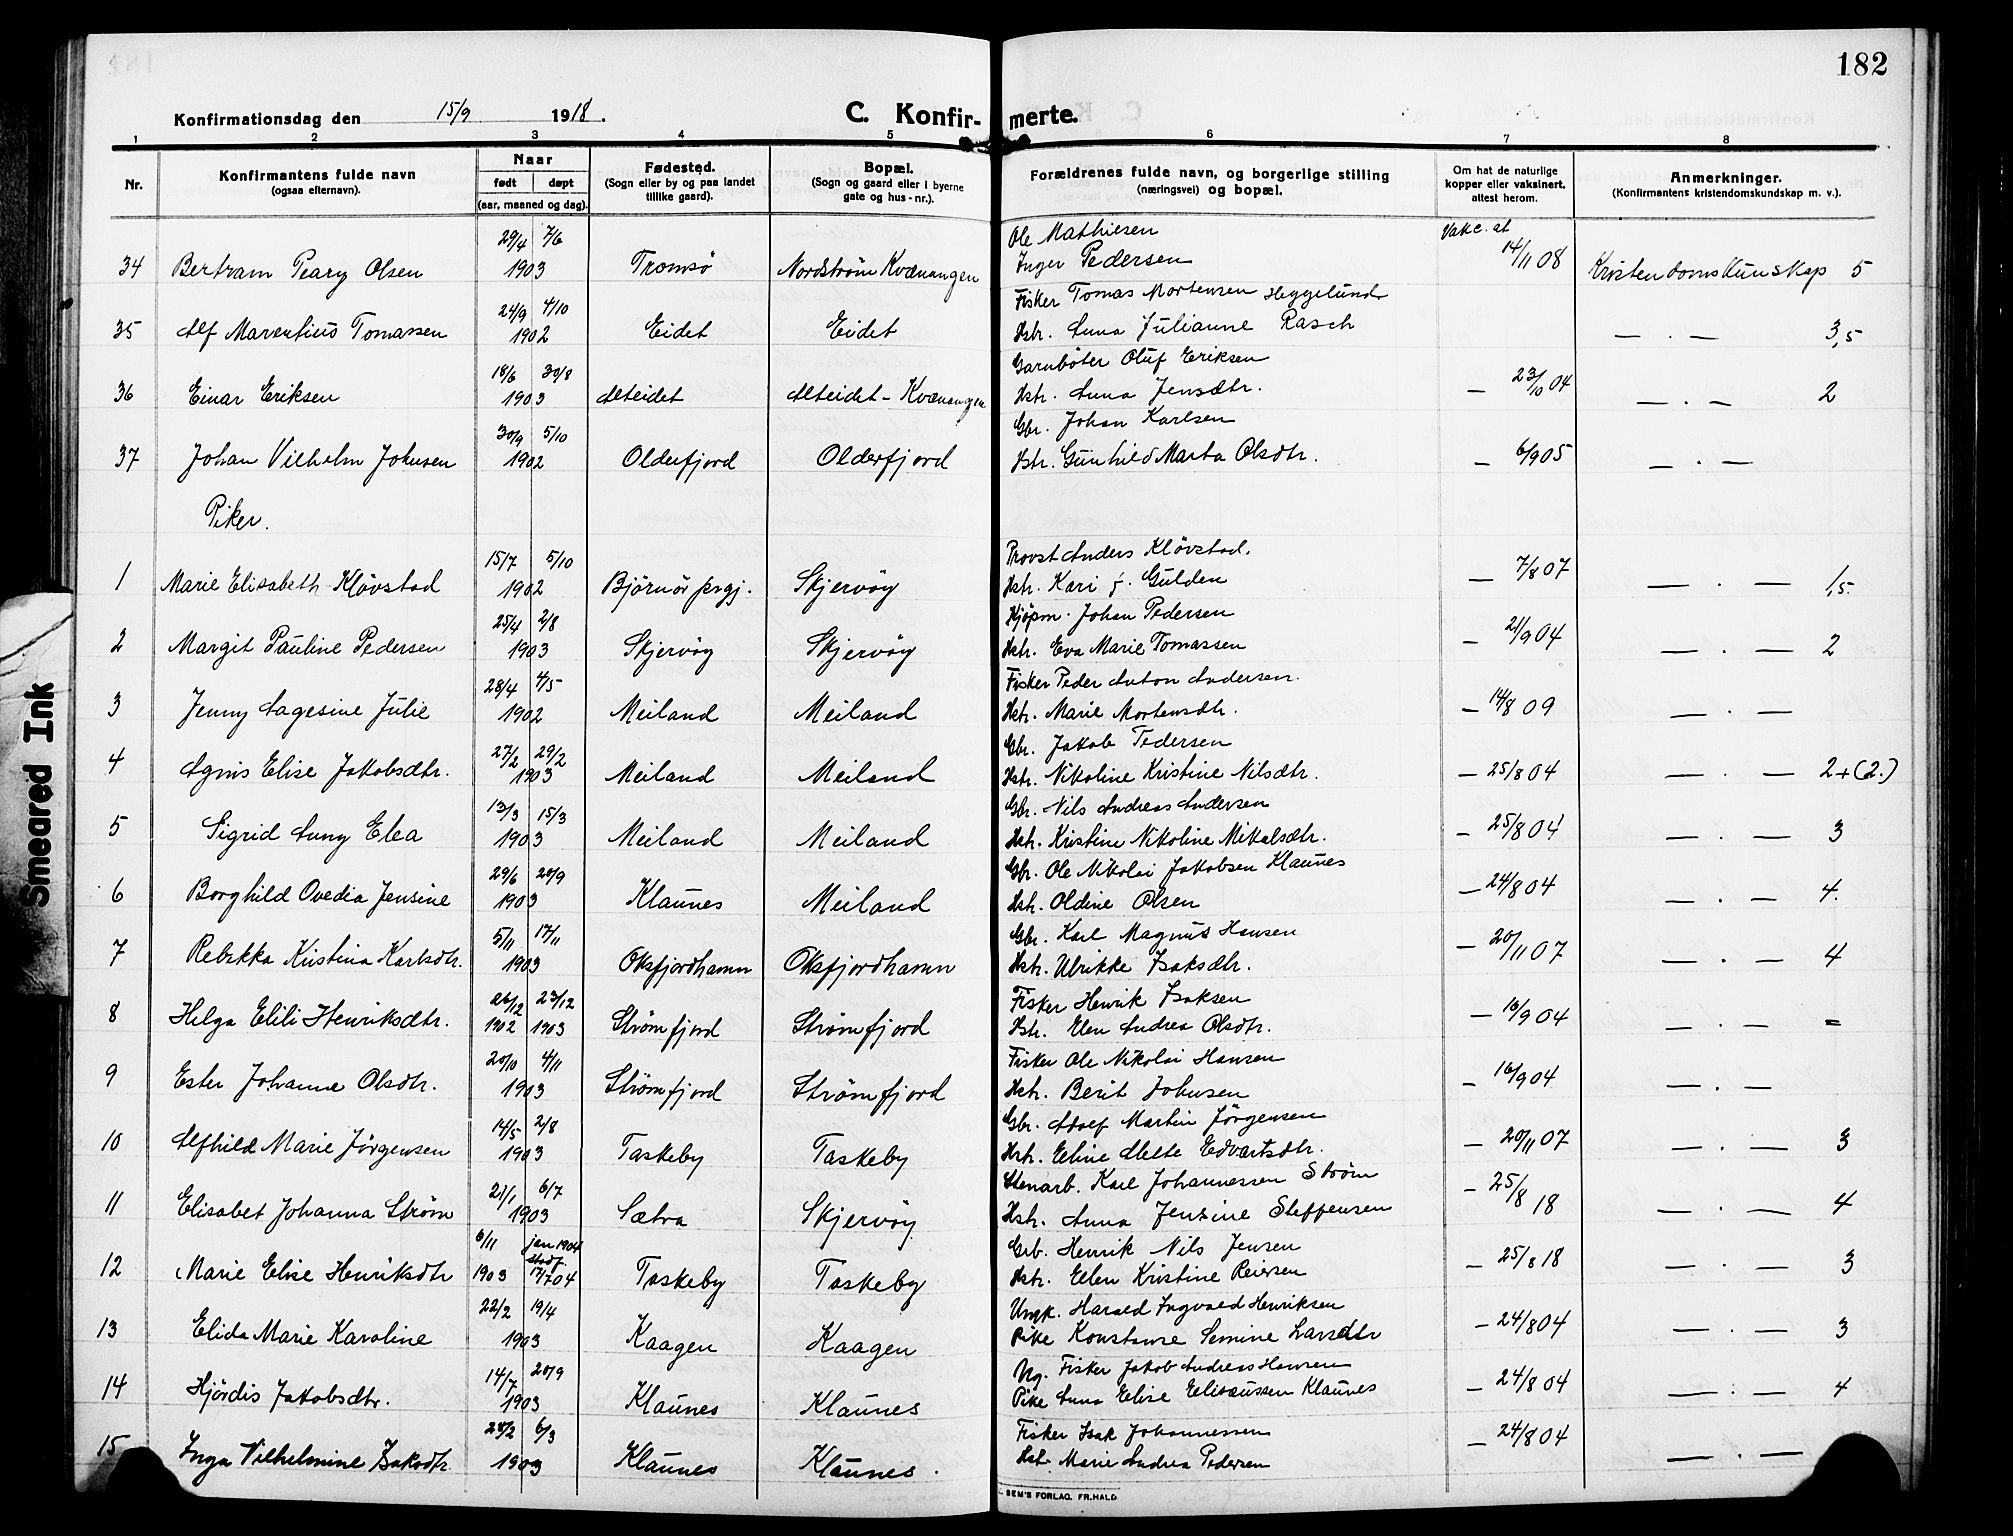 182
Konfirmationsdag den 15/9 1918.
C. Konfirmerte.
1 2 3 4 5 6 7 8
Nr.
Konfirmantens fulde navn
(ogsaa efternavn).
Naar
født døpt
(aar, maaned og dag).
Fødested.
(Sogn eller by og paa landet
tillike gaard).
Bopæl.
(Sogn og gaard eller i byerne
gate og hus-nr.).
Forældrenes fulde navn, og borgerlige stilling
(næringsvei) og bopæl.
Om hat de naturlige
kopper eller vaksinert,
attest herom.
Anmerkninger.
(Konfirmantens kristendomskundskap m. v.).
29/4 7/6 Ole Mathiesen Vakc. at
34 Bertram Peary Olsen 1903 Tromsø Nordstrøm Kvænangen Inger Pedersen 14/11 08 Kristendomskunskap 5
24/9 4/10 Fisker Tomas Mortensen Heggelund
35 Alf Marentius Tomassen 1902 Eidet Eidet Hstr. Anna Julianne Rasch — . — 3,5
18/6 30/8 Garnbøter Oluf Eriksen
36 Einar Eriksen 1903 Alteidet Alteidet - Kvænangen Hstr. Anna Jensdtr. — 23/10 04 — . — 2
30/9 5/10 Gbr. Johan Karlsen
37 Johan Vilhelm Johnsen 1902 Olderfjord Olderfjord Hstr. Gunhild Marta Olsdtr. — 6/9 05 — . —
Piker.
15/7 5/10 Provst Anders Kløvstad.
1 Marie Elisabeth Kløvstad 1902 Bjørnør prgj. Skjervøy Hstr. Kari f. Gulden — 7/8 07 — . — 1,5.
25/4 2/8 Kjøpm. Johan Pedersen
2 Margit Pauline Pedersen 1903 Skjervøy Skjervøy Hstr. Eva Marie Tomassen — 21/9 04 — . — 2
28/4 4/5 Fisker Peder Anton Andersen.
3 Jenny Aagesine Julie 1902 Meiland Meiland Hstr. Marie Mortensdtr. — 14/8 09 — . —
27/2 29/2 Gbr. Jakob Pedersen
4 Agnis Elise Jakobsdtr. 1903 Meiland Meiland Hstr. Nikoline Kristine Nilsdtr. — 25/8 04 — . — 2+(2.)
13/3 15/3 Gbr. Nils Andreas Andersen
5 Sigrid Anny Elea 1903 Meiland Meiland Hstr. Kristine Nikoline Mikalsdtr. — 25/8 04 — . — 3
29/6 20/9 Gbr. Ole Nikolai Jakobsen Klaunes
6 Borghild Ovedia Jensine 1903 Klaunes Meiland Hstr. Oldine Olsen — 24/8 04 — . — 4.
5/11 17/11 Gbr. Karl Magnus Hansen
7 Rebekka Kristina Karlsdtr. 1903 Oksfjordhamn Oksfjordhamn Hstr. Ulrikke Isaksdtr. — 20/11 07 — . — 4
26/12 23/12 Fisker Henrik Isaksen
8 Helga Elili Henriksdtr. 1902 1903 Strømfjord Strømfjord Hstr. Elen Andrea Olsdtr. — 16/9 04 — . — =
20/10 4/11 Fisker Ole Nikolai Hansen
9 Ester Johanne Olsdtr. 1903 Strømfjord Strømfjord Hstr. Berit Johnsen — 16/9 04 — . —
14/5 2/8 Gbr. Adolf Martin Jørgensen
10 Alfhild Marie Jørgensen 1903 Taskeby Taskeby Hstr. Eline Mette Edvartsdtr. — 20/11 07 — . — 3
21/1 6/7 Stenarb. Karl Johannessen Strøm
11 Elisabet Johanna Strøm 1903 Sætra Skjervøy Hstr. Anna Jensine Steffensen — 25/8 18 — . — 4
6/11 jan 1904 stadf. Grb. Henrik Nils Jensen
12 Marie Elise Henriksdtr 1903 17/7 04 Taskeby Taskeby Hstr. Ellen Kristine Reiersen — 25/8 18 — . — 3
22/2 19/4 Ungk. Harald Ingvald Henriksen
13 Elida Marie Karoline 1903 Kaagen Kaagen Pike Konstanse Semine Larsdtr — 24/8 04 — . — 3
14/7 20/9 Ug. Fisker Jakob Andreas Hansen
14 Hjørdis Jakobsdtr. 1903 Klaunes Klaunes Pike Anna Elise Eliseussen Klaunes — 24/8 04 — : — 4
24/2 6/3 Fisker Isak Johannessen
15 Inga Vilhelmine Isaksdtr. 1903 Klaunes Klaunes. Hst. Marie Andrea Pedersen — 24/8 04 — . —
SEM'S FORLAG, FR.HALD
Smeared Ink